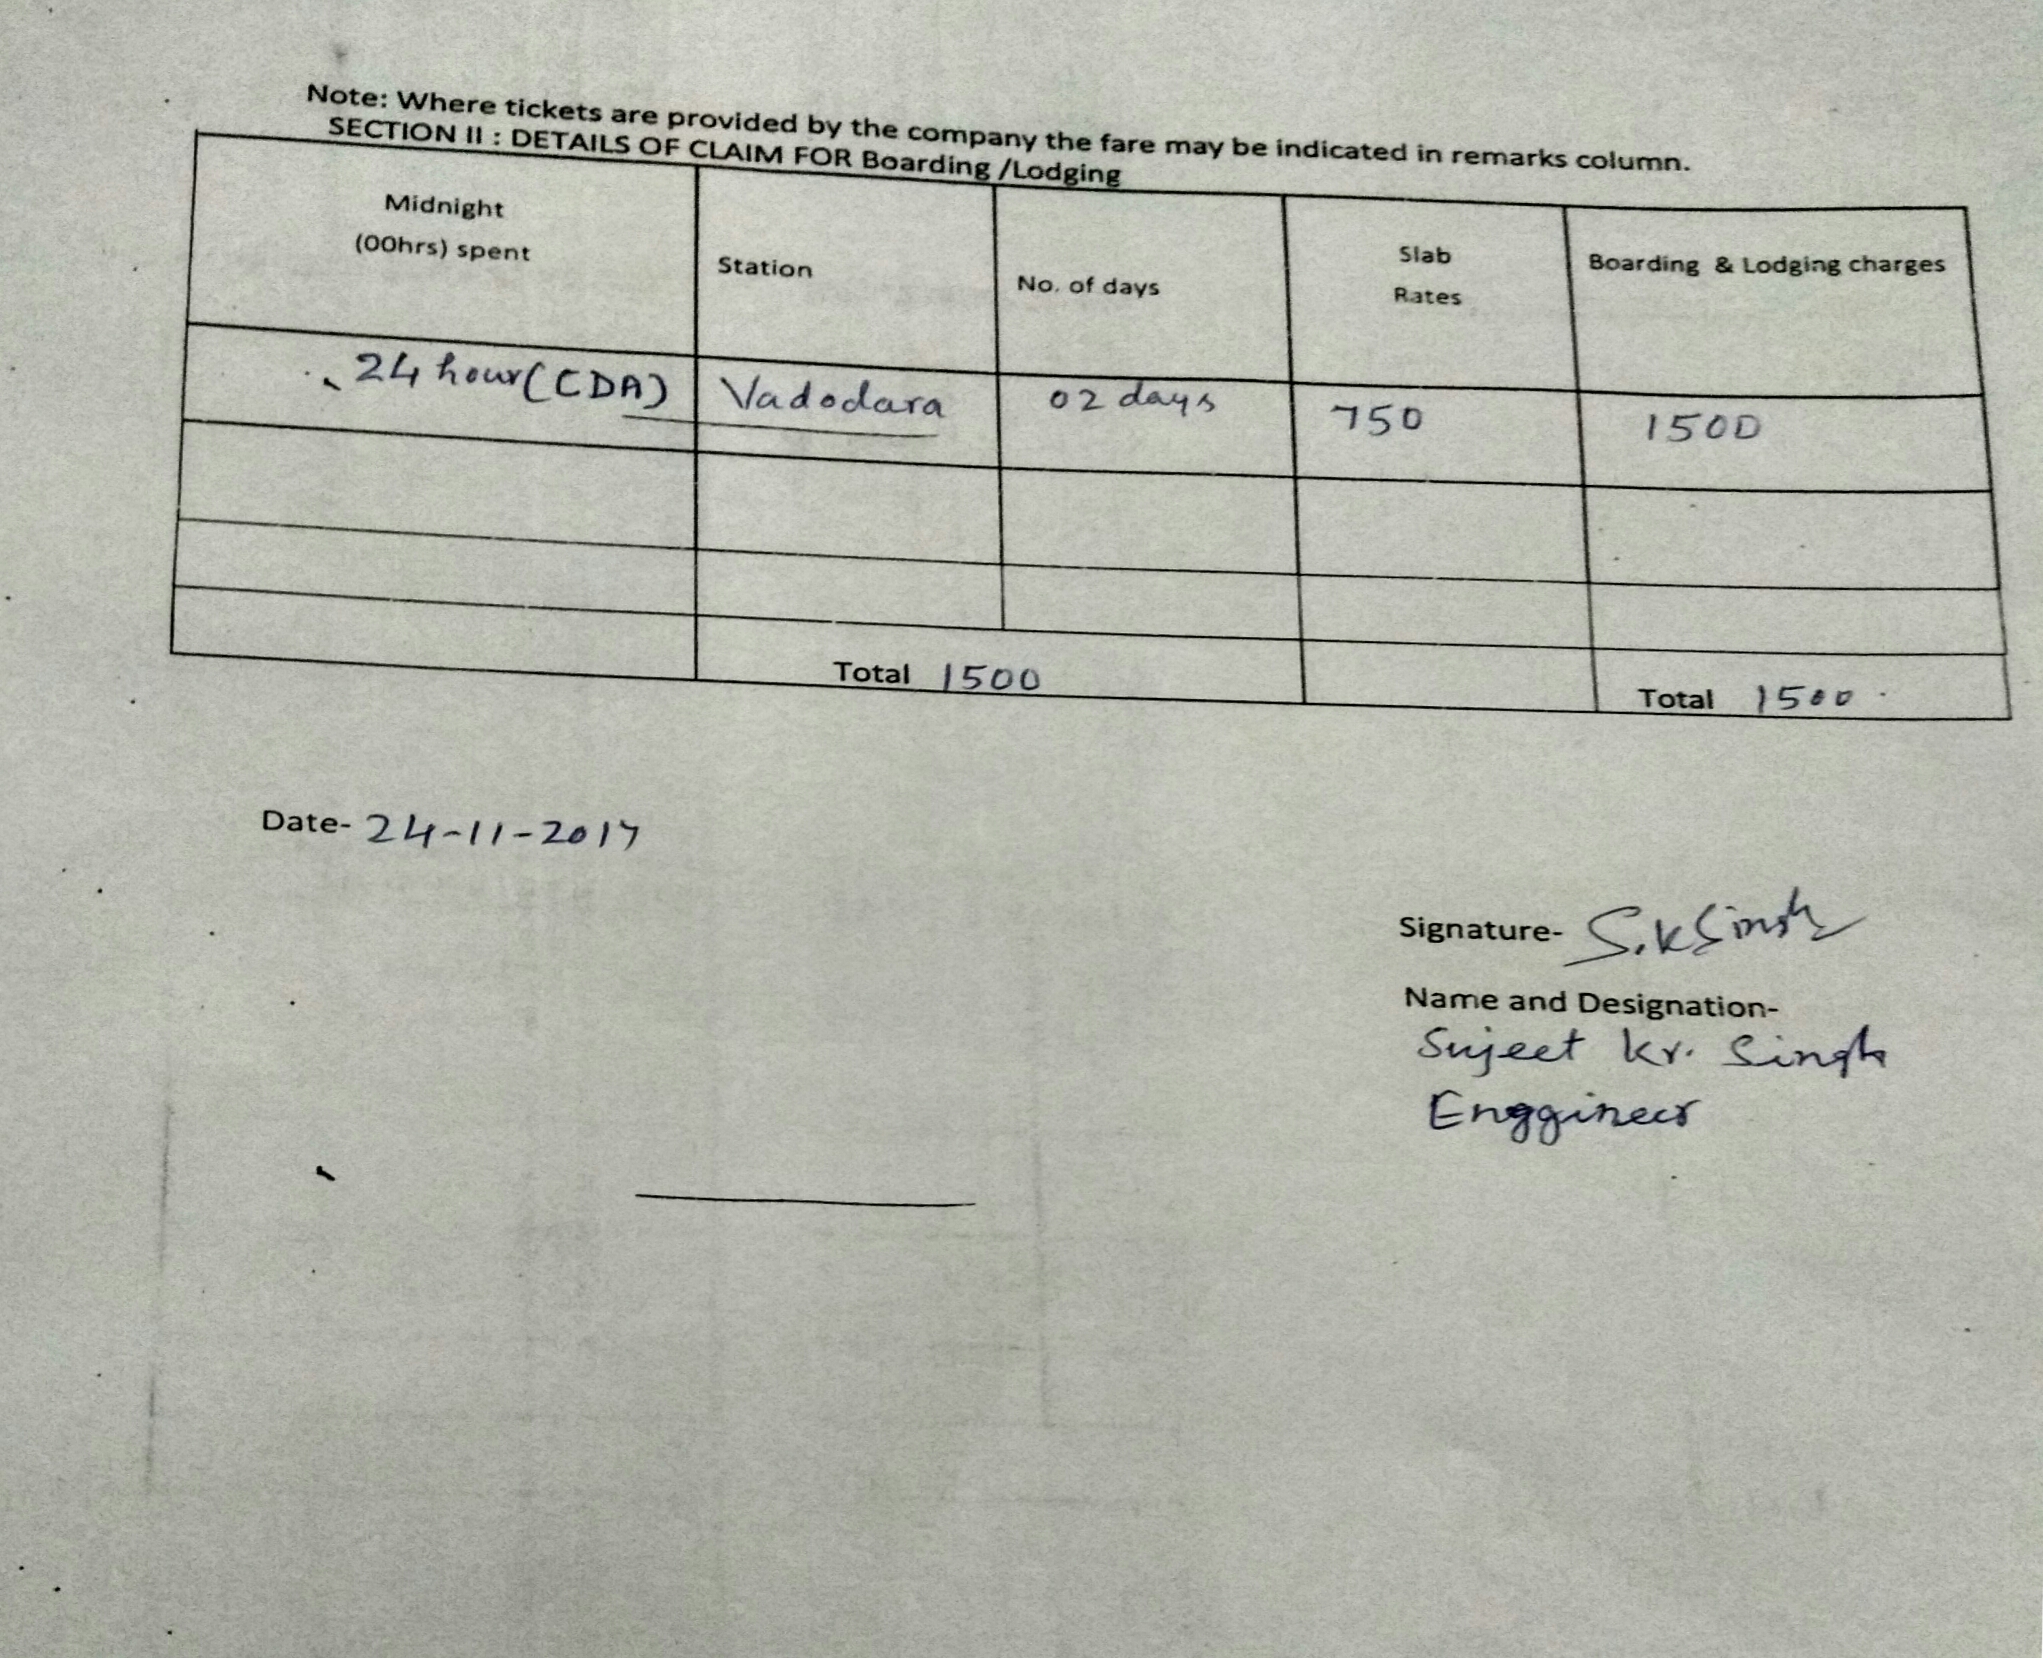 Note: Where tickets are provided by the company the fare may be indicated in remarks column.
SECTION II : DETAILS OF CLAIM FOR Boarding /Lodging
Midnight
(00hrs) spent
Station
No. of days
Slab
Rates
Boarding & Lodging charges
24 hour (CDA)
Vadodara
02 days
750
1500
Total 1500
Total 1500
Date- 24-11-2017
Signature- S.K Singh
Name and Designation-
Sujeet Kr. Singh
Enggineer